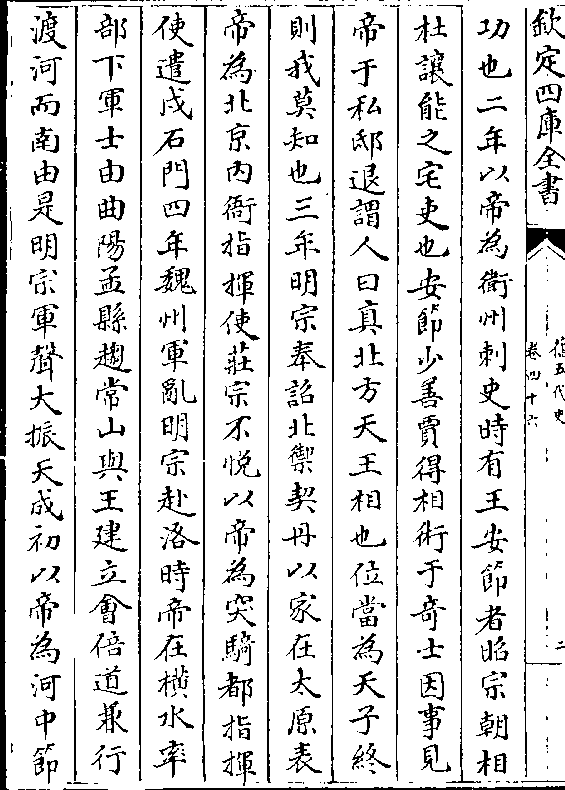 欽定四庫全書
舊五代史
卷四十六
二
功也二年以帝為衛州刺史時有王安節者昭宗朝相
杜讓能之宅吏也安節少善賈得相術于奇士因事見
帝于私邸退謂人曰真北方天王相也位當為天子終
則我莫知也三年明宗奉詔北禦契丹以家在太原表
帝為北京內衙指揮使莊宗不悅以帝為突騎都指揮
使遣戍石門四年魏州軍亂明宗赴洛時帝在橫水率
部下軍士由曲陽孟縣趨常山與王建立會倍道兼行
渡河而南由是明宗軍聲大振天成初以帝為河中節